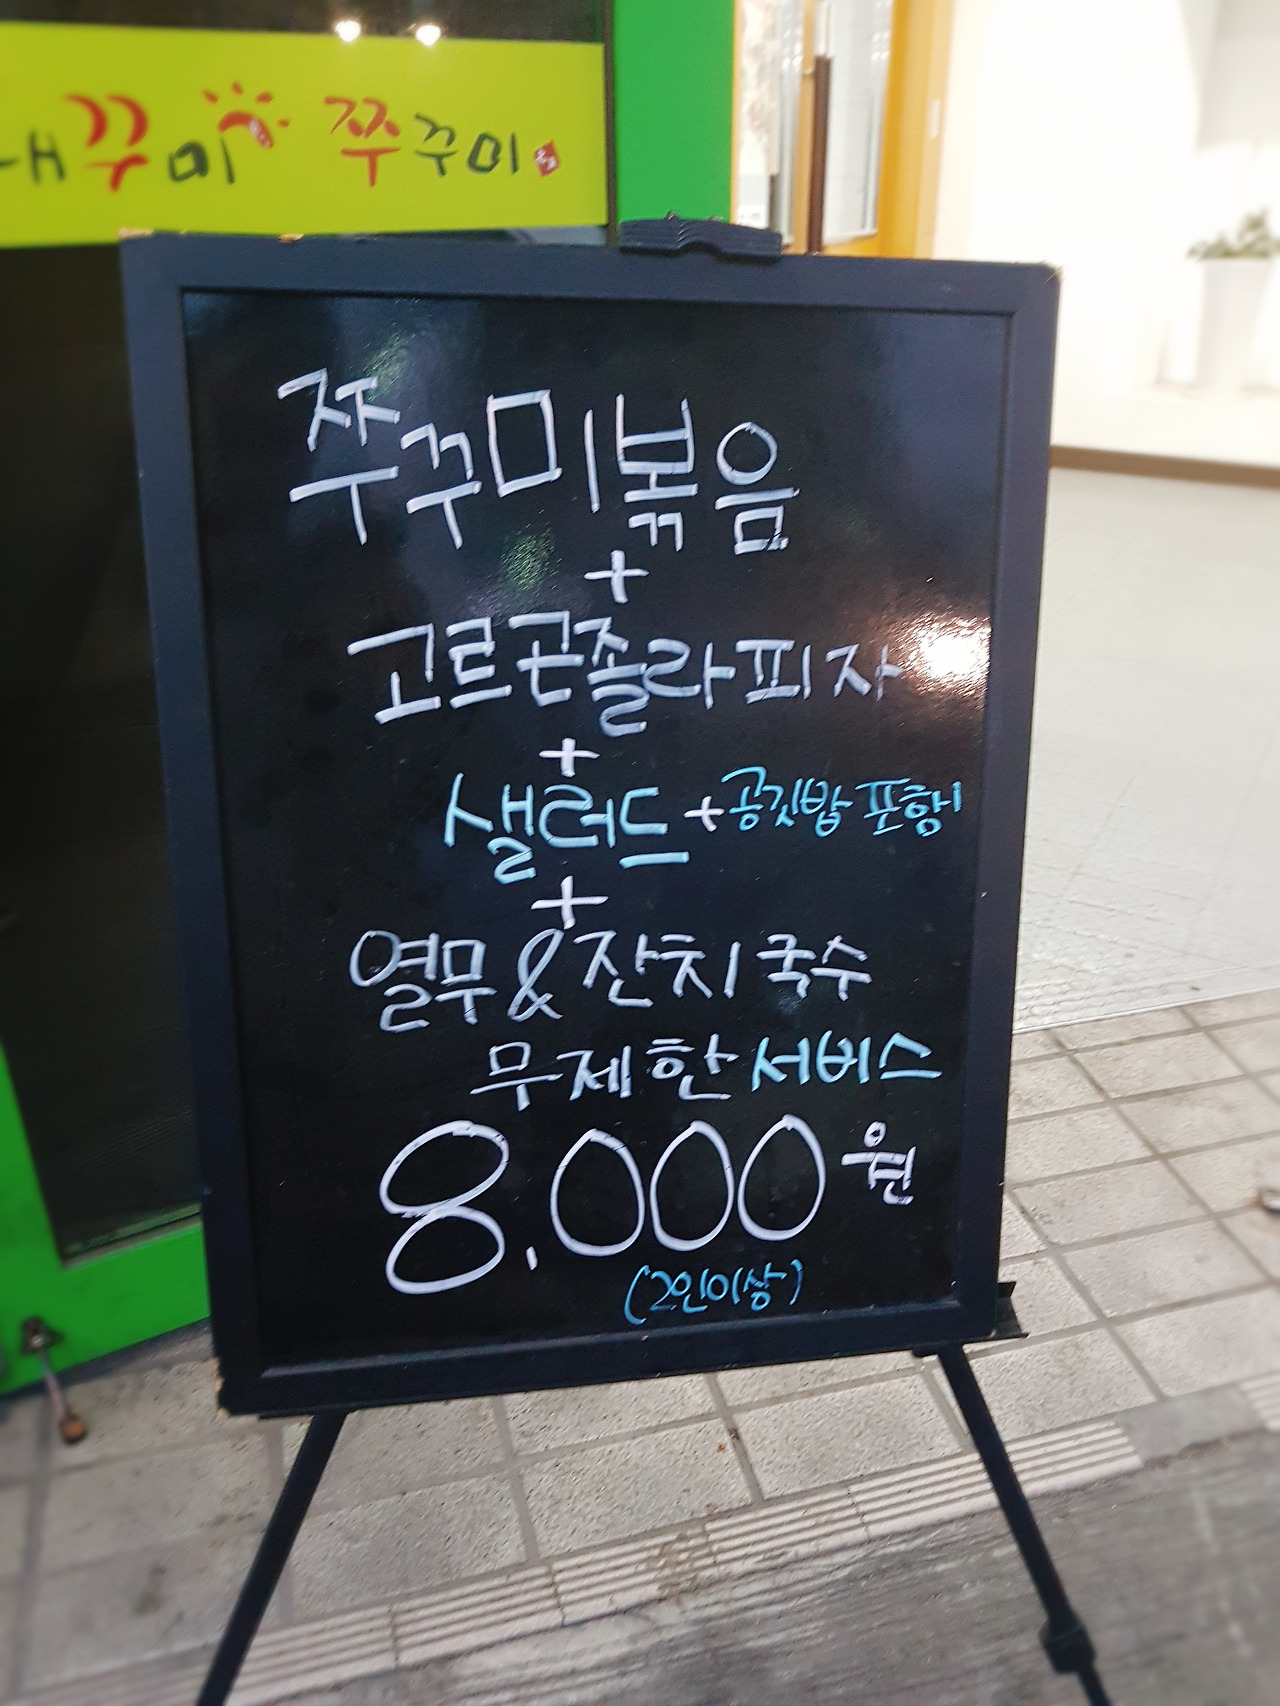 대꾸미 쭈꾸미
쭈꾸미볶음
+
고르곤졸라피자
+
샐러드 + 공깃밥 포함!
+
열무&잔치국수
무제한 서비스
8,000원
(2인이상)